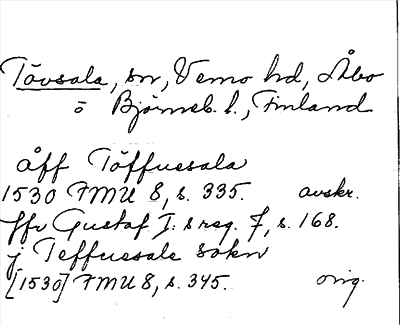 Tövsala, sn, Vemo hd, Åbo
o Björneb. l., Finland
åff Töffuesala
1530 FMU 8, s. 335. avskr.
ffv Gustaf I:s reg. 7, s. 168.
j Teffuesale sokn
[1530] FMU 8, s. 345. orig.